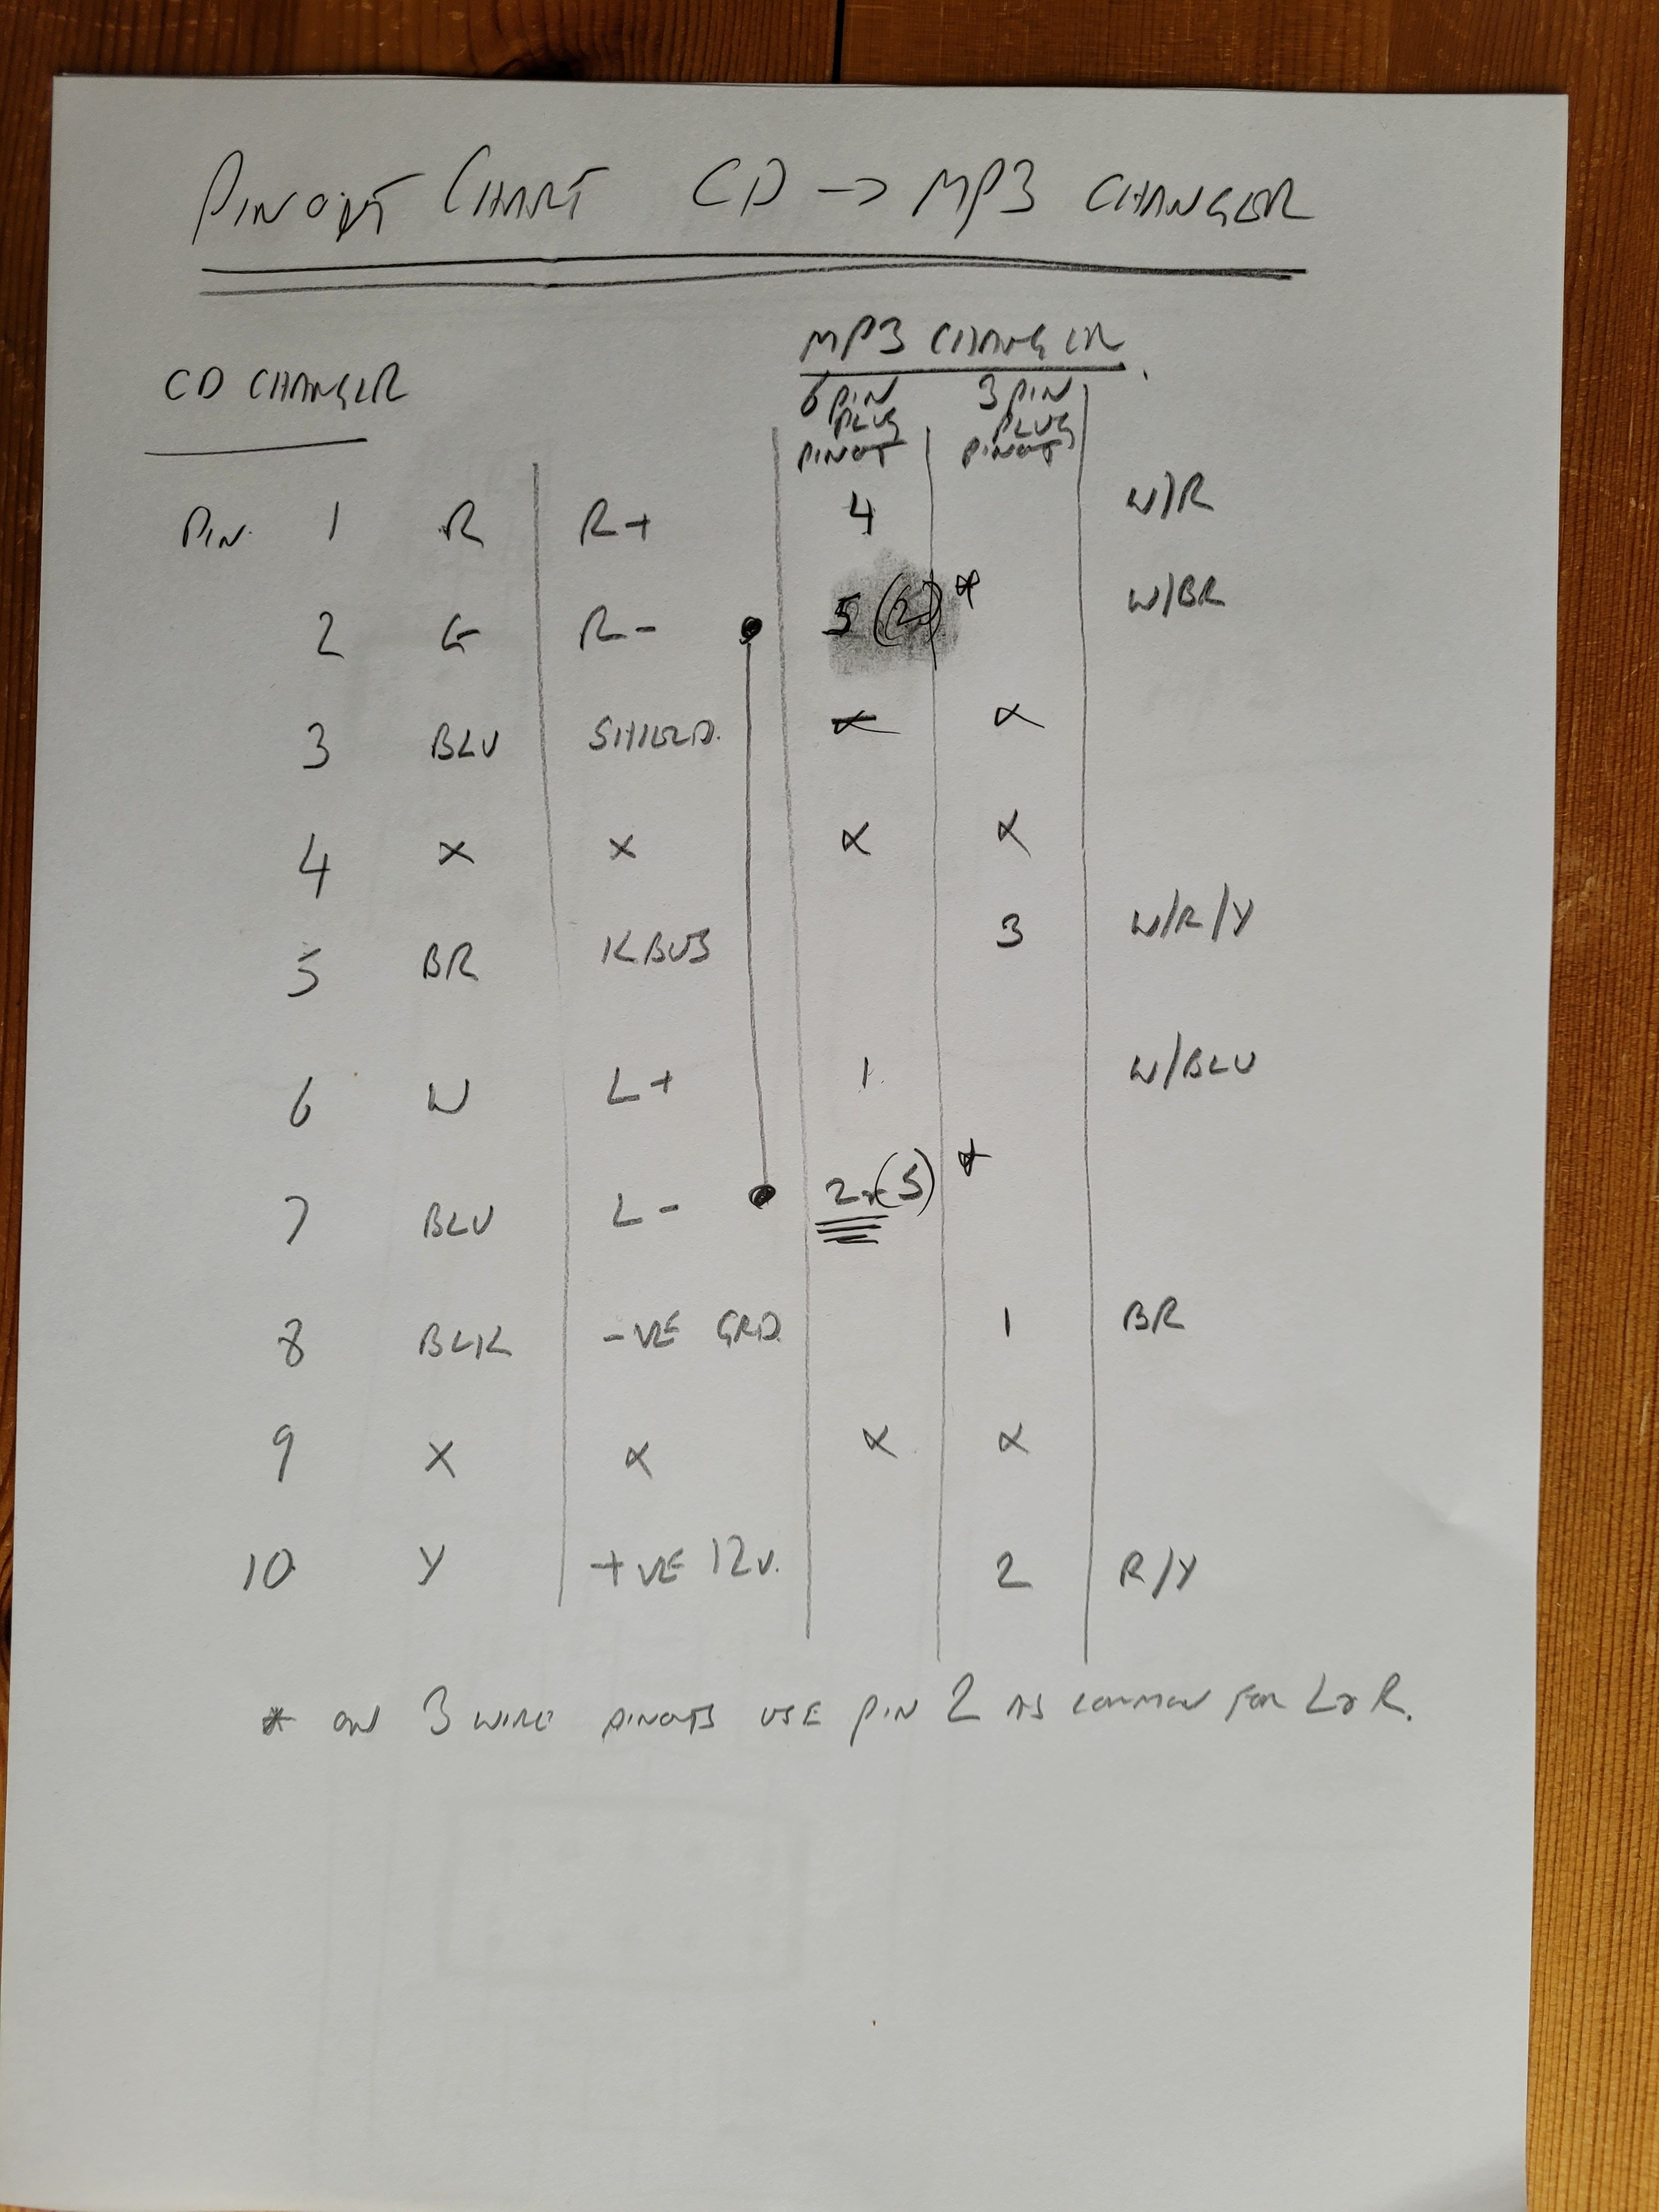 PINOUT CHART CD → MP3 CHANGER
MP3 CHANGER
CD CHANGER
6 PIN PLUG PINOUT 3 PIN PLUG PINOUT
PIN 1 R R+ 4 W/R
2 G R- 5 (2) * W/BR
3 BLU SHIELD. x x
4 x x x x
5 BR KBUS 3 W/R/Y
6 W L+ 1 W/BLU
7 BLU L- 2 (5) *
8 BLK -VE GRD 1 BR
9 X x x x
10 Y +VE 12V. 2 R/Y
* ON 3 WIRE PINOUTS USE PIN 2 AS COMMON FOR L & R.